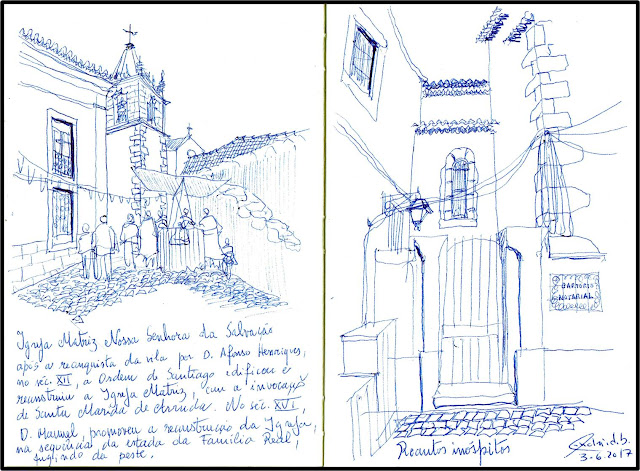 Igreja Matriz Nossa Senhora da Salvação
após a reconquista da vila por D. Afonso Henriques,
no séc. XII, a Ordem de Santiago edificou e
reconstruiu a Igreja Matriz, com a invocação
de Santa Marinha de Arruda. No séc. XVI,
D. Manuel, promoveu a reconstrução da Igreja,
na sequência da estada da Família Real,
fugindo da peste.
CARTÓRIO
NOTARIAL
Recantos inóspitos
3-6-2017